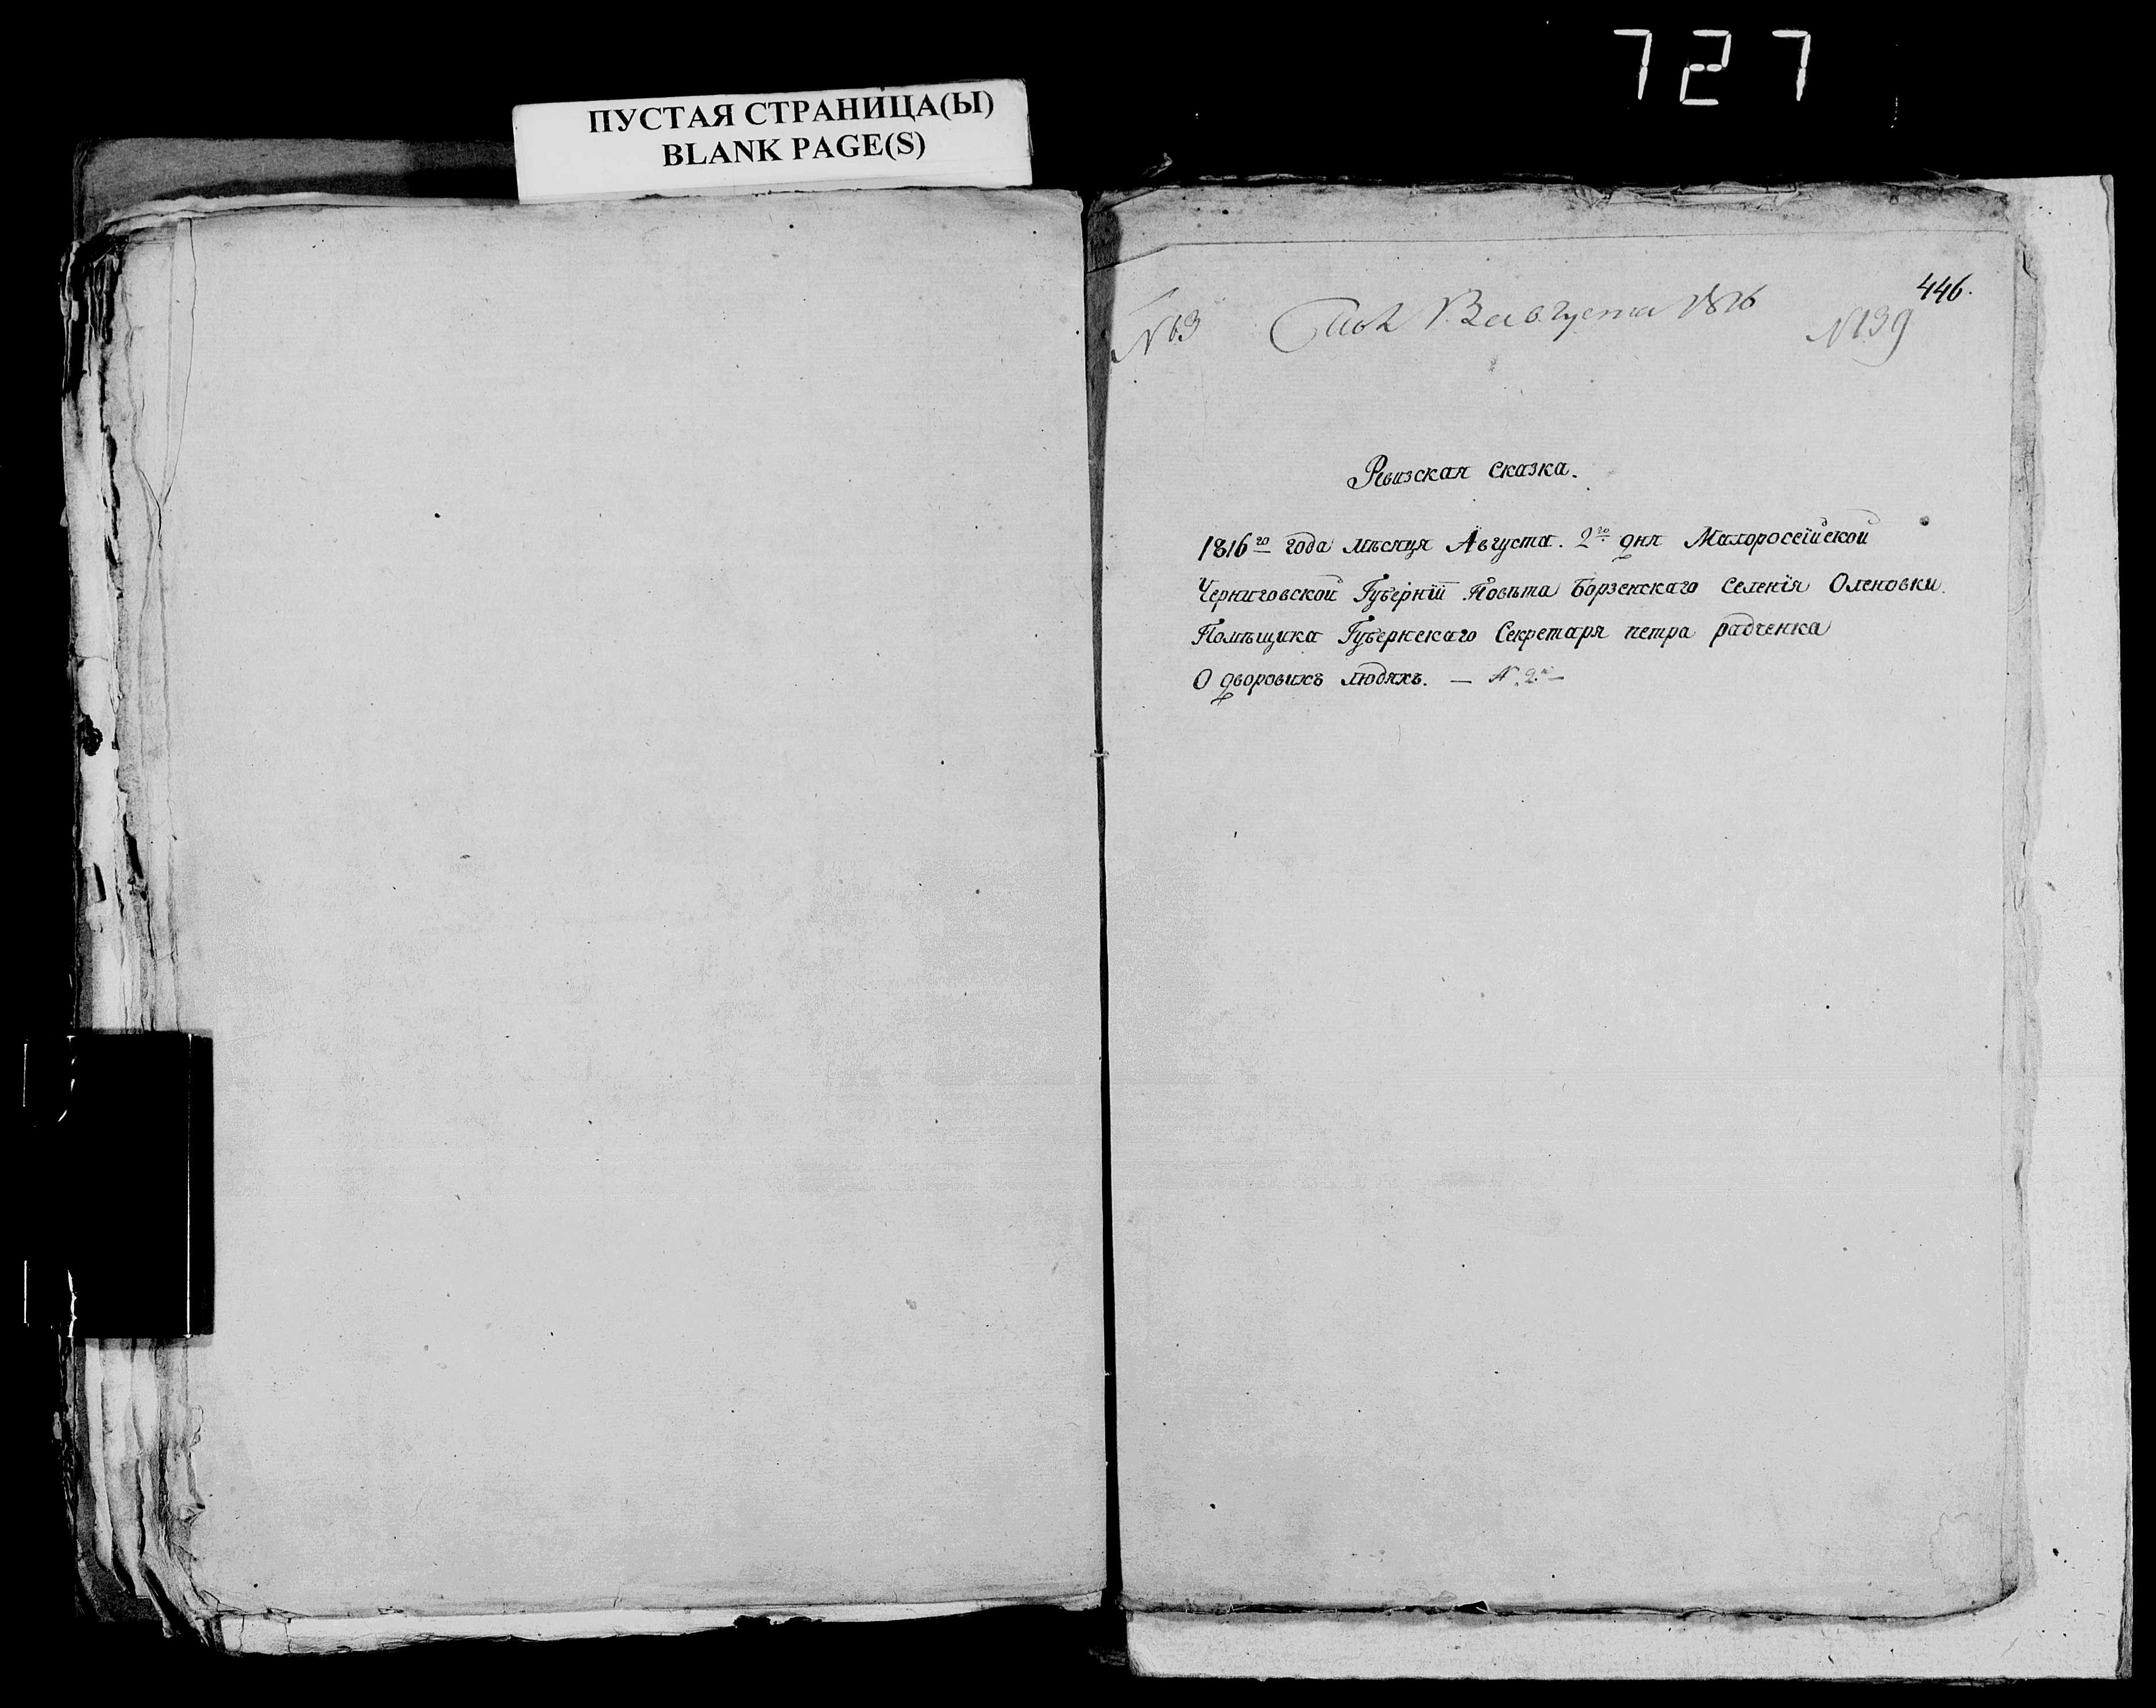 727
ПУСТАЯ СТРАНИЦА(Ы)
BLANK PAGE(S)
446.
№ 63 августа 1816 № 139
Ревизская сказка.
1816го года мѣсяця Августа. 2го дня Малоросеійской
Черниговской Губерніи Повѣта Борзенскаго Селенія Оленовки.
Помѣщика Губернскаго Секретаря петра радченка
О дворовихъ людяхъ. — № 2й —